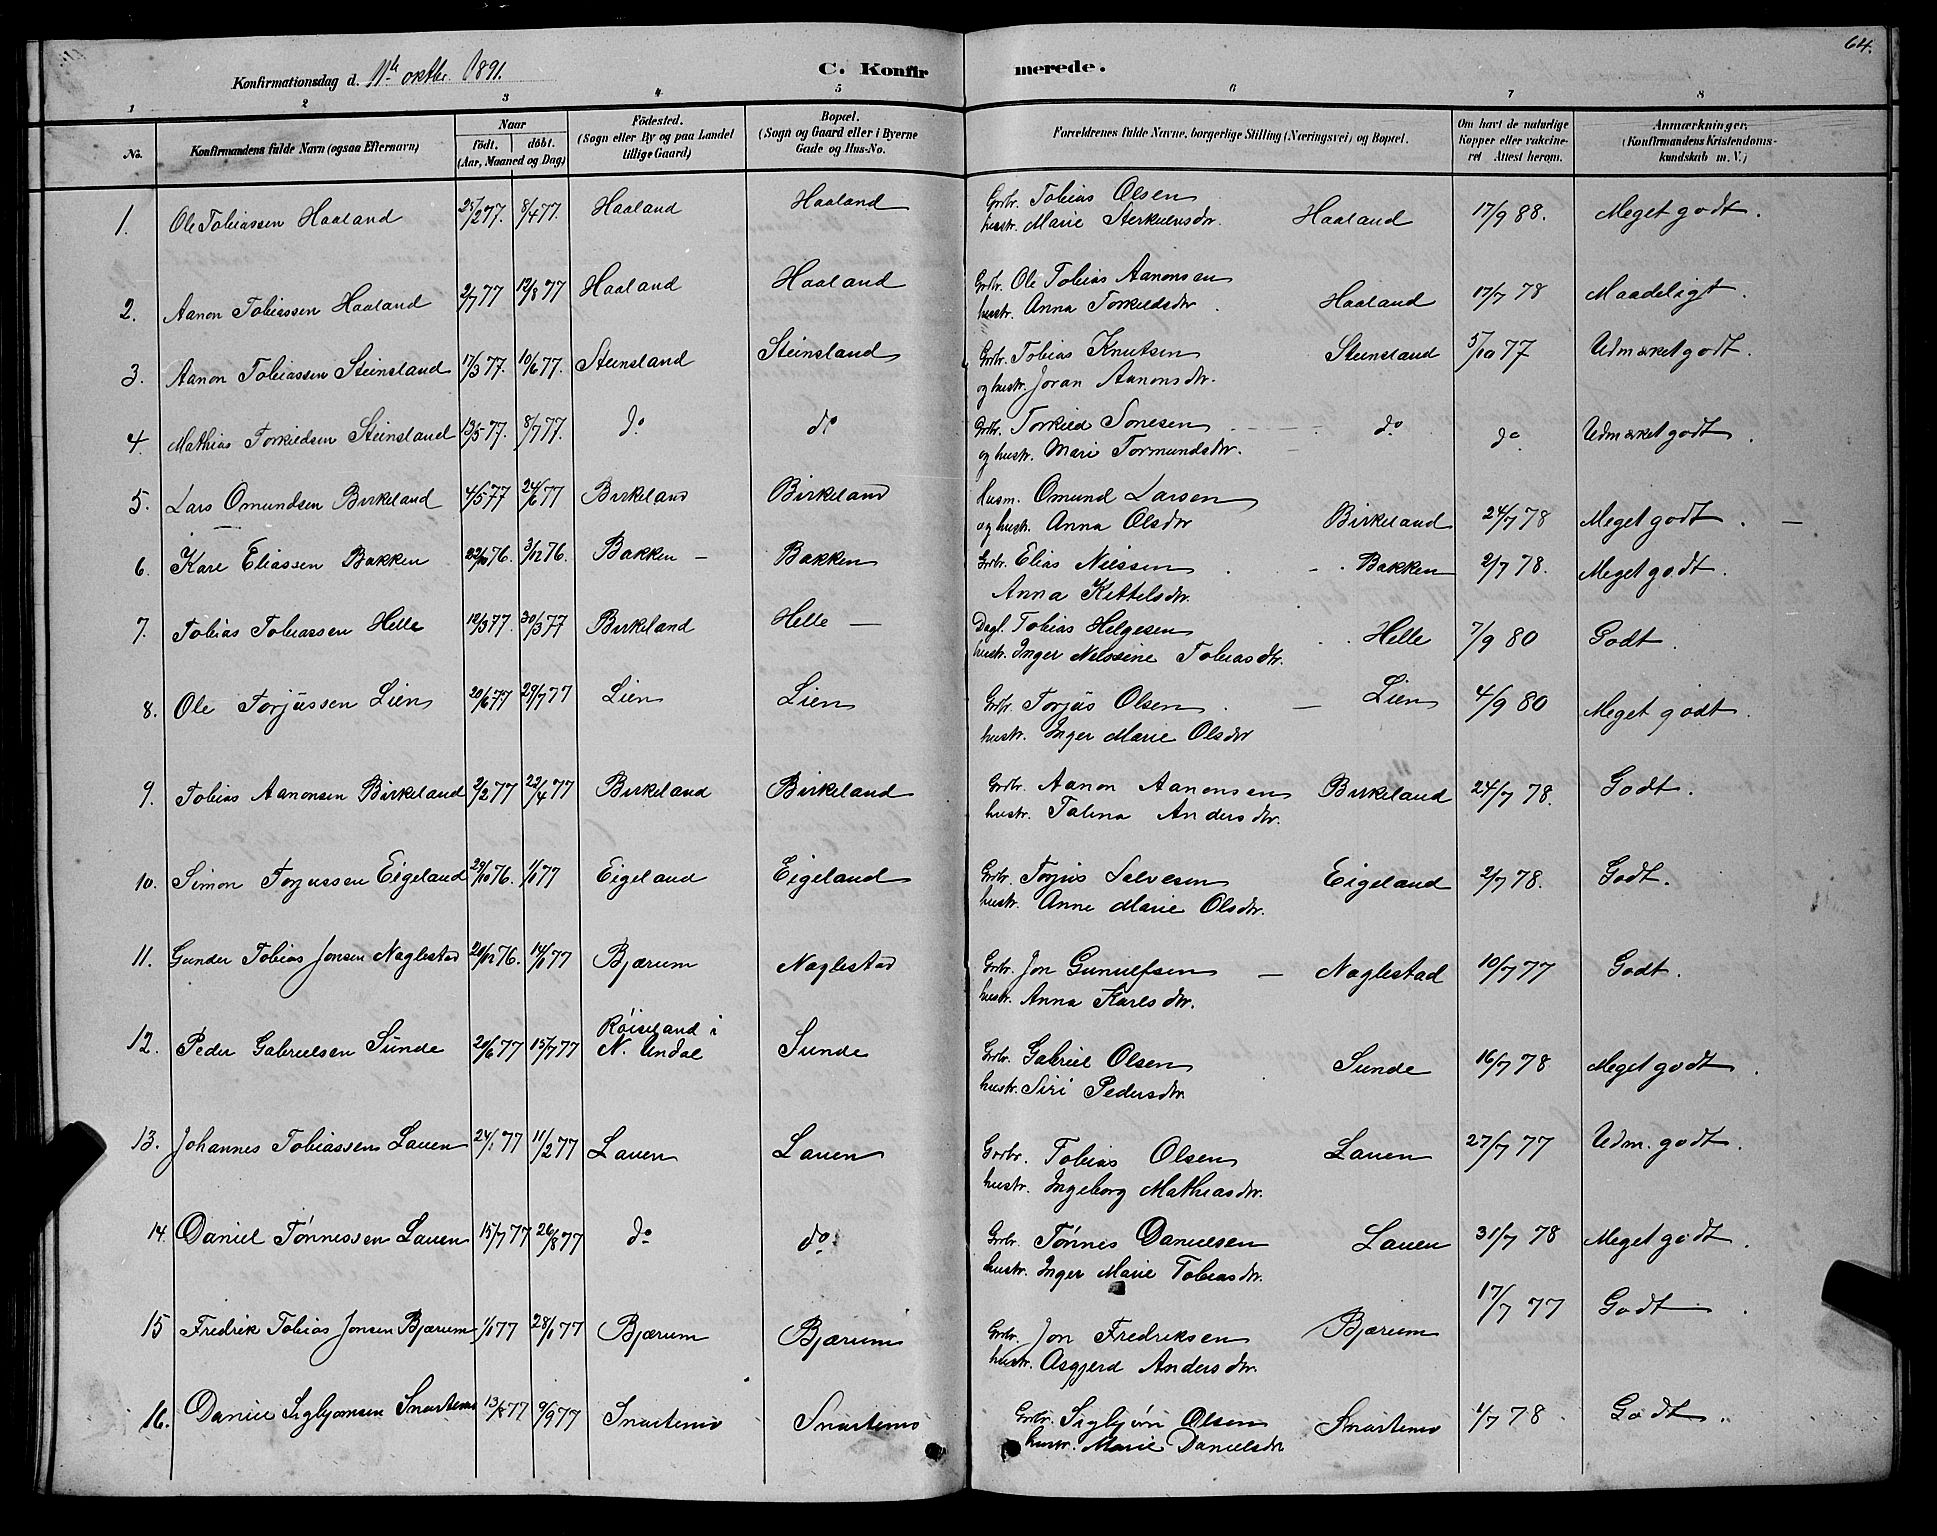 64.
Konfirmationsdag d. 11te oktbr. 1891.
C. Konfirmerede.
1 2 3 4 5 6 7 8
No.
Konfirmandens fulde Navn (ogsaa Efternavn)
Naar
födt. döbt.
(Aar, Maaned og Dag)
Födested.
(Sogn eller By og paa Landet
tillige Gaard)
Bopæl.
(Sogn og Gaard eller i Byerne
Gade og Hus-No.
Forældrenes fulde Navne, borgerlige Stilling (Næringsvei) og Bopæl.
Om havt de naturlige
Kopper eller vakcine-
ret Attest herom.
Anmærkninger.
(Konfirmandens Kristendoms-
kundskab m. V.)
1. Ole Tobiassen Haaland 25/2 77. 8/4 77. Haaland Haaland Grbr. Tobias Olsen
hustr. Marie Sterkulersdtr. Haaland 17/9 88. Meget godt.
2. Aanon Tobiassen Haaland 2/7 77 12/8 77 Haaland Haaland Grbr. Ole Tobias Aanonsen
hustr. Anna Torkildsdtr. Haaland 17/7 78 Maadeligt.
3. Aanon Tobiassen Steinsland 17/3 77. 10/6 77. Steinsland Steinsland Grbr. Tobias Knutsen
og hustr. Joran Aanonsdtr. Steinsland 5/10 77 Udmærket godt.
4. Mathias Torkildsen Steinsland 13/5 77. 8/7 77. do do Grbr. Torkild Tonesen
og hustr. Mari Tormundsdtr. do do Udmærket godt.
5. Lars Omundsen Birkeland 4/5 77 24/6 77 Birkeland Birkeland Husm. Omund Larsen
og hustr. Anna Olsdtr Birkeland 24/7 78 Meget godt. —
6. Kare Eliassen Bakken 22/10 76. 3/12 76. Bakken — Bakken Grbr. Elias Nilssen
Anna Kittelsdtr. Bakken 2/7 78. Meget godt.
7. Tobias Tobiassen Helle 12/3 77. 30/3 77 Birkeland Helle — Dagl. Tobias Helgesen
hustr. Inger Nilssine Tobiasdtr. Helle 7/9 80 Godt.
8. Ole Torjussen Lien 20/6 77 29/7 77 Lien Lien Grbr. Torjus Olsen
hustr. Inger Marie Olsdtr — Lien 4/9 80 Meget godt.
9. Tobias Aanonsen Birkeland 2/2 77 22/4 77 Birkeland Birkeland Grbr. Aanon Aanonsen
hustr. Talena Andersdtr. Birkeland 24/7 78. Godt.
10. Simon Torjussen Eigeland 29/10 76. 1/1 77 Eigeland Eigeland Grbr. Torjus Salvesen
hustr. Anne Marie Olsdtr. Eigeland 2/7 78. Godt.
11. Gunder Tobias Jonsen Naglestad 20/12 76. 14/1 77 Bjærum Naglestad Grbr. Jon Gunulfsen
hustr. Anna Karlsdtr. — Naglestad 10/7 77 Godt.
12. Peder Gabrielsen Sunde 20/6 77 15/7 77 Röiseland i
N. Undal Sunde Grbr. Gabriel Olsen
hustr. Siri Pedersdtr. Sunde 16/7 78 Meget godt.
13. Johannes Tobiassen Lauen 24/1 77 11/2 77 Lauen Lauen Grbr. Tobias Olsen
hustr. Ingeborg Mathiasdtr. Lauen 27/7 77 Udm. godt.
14. Daniel Tönnessen Lauen 15/7 77 26/8 77 do do. Grbr. Tönnes Danielsen
hustr. Inger Marie Tobiasdtr. Lauen 31/7 78 Meget godt.
15 Fredrik Tobias Jonsen Bjærum 1/1 77 28/1 77 Bjærum Bjærum Grbr. Jon Fredriksen
hustr. Asgjerd Andersdtr. Bjærum 17/7 77 Godt.
16. Daniel Sigbjörnsen Snartemo 9/9 77 Snartemo Snartemo Grbr. Sigbjörn Olsen
hustr. Marie Danielsdtr Snartemo 1/7 78 Godt.